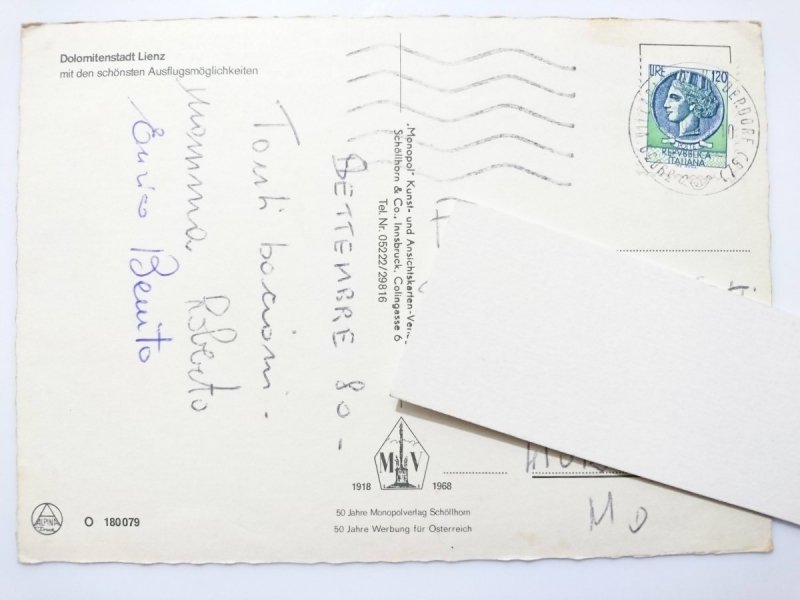 Dolomitenstadt Lienz
mit den schönsten Ausflugsmöglichkeiten
SETTEMBRE 80 -
Tanti bacioni -
mamma Roberto
Enrico Benito
"Monopol" Kunst- und Ansichtskarten-Ver
Schöllhorn & Co., Innsbruck, Colingasse 6
Tel. Nr. 05222/29816
LIRE 120
POSTE
REPVBBLICA
ITALIANA
M V
1918 1968
50 Jahre Monopolverlag Schöllhorn
50 Jahre Werbung für Österreich
ALPINA
Druck
O 180079
MO